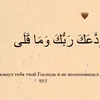 دَّعَكَ رَبُّكَ وَمَا قَلَى
кинул тебя твой Господь и не возненавидел
93:3